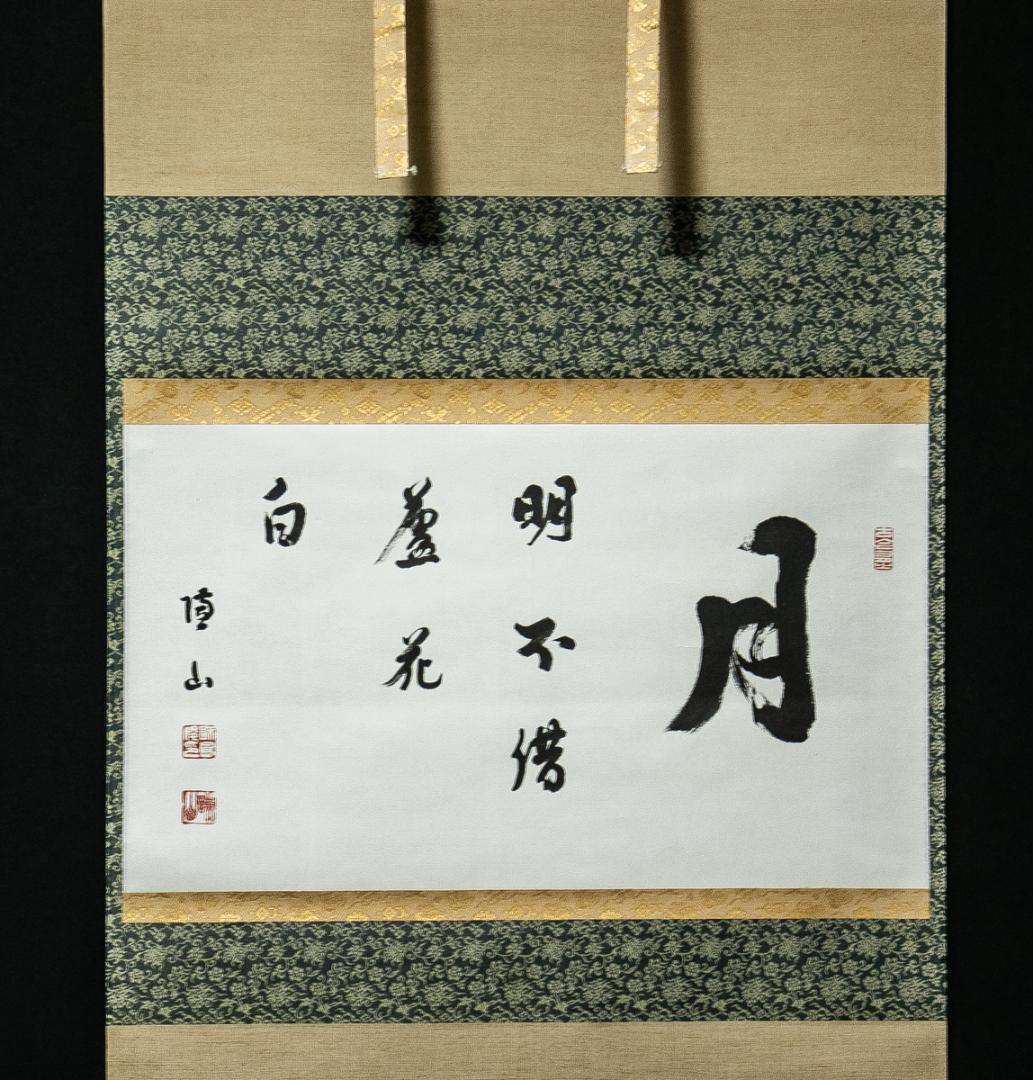 月
明不借
蘆花
白
頂山